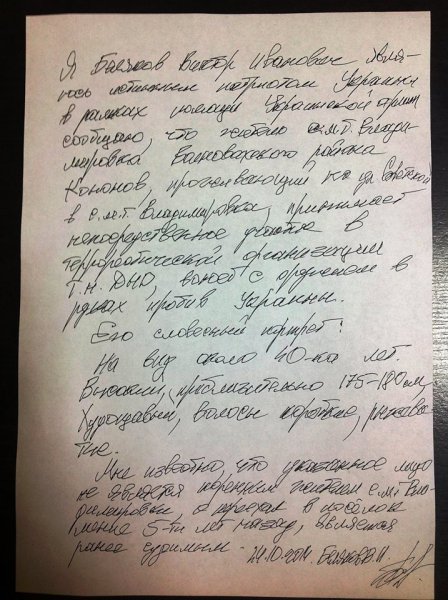 Я Виктор Иванович явля-
юсь истинным патриотом Украины
в рамках помощи Украинской армии
сообщаю, что житель с.м.т. Влади-
мировка Волновахского района
Кононов, проживающий на ул. Советской
в с.м.т Владимировка, принимает
непосредственное участие в
террористической организации
т.н. ДНР, воюет с оружием в
руках против Украины.
Его словесный портрет:
На вид около 40-ка лет.
Высокий, приблизительно 175-180 см,
Худощавый, волосы короткие, рыжева-
тые.
Мне известно, что указанное лицо
не является коренным жителем с.м.т Вла-
димировки, а приехал в посёлок
менее 5-ти лет назад, является
ранее судимым. 24.10.2014.